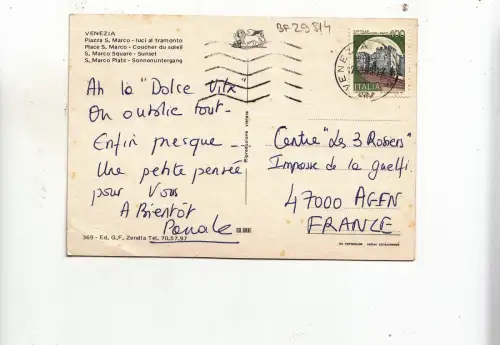 VENEZIA
Piazza S. Marco - luci al tramonto
Place S. Marco - Coucher du soleil
S. Marco Square - Sunset
S. Marco Platz - Sonnenuntergang
BF 29 S/4
400
ITALIA
VENEZ
Ah la "Dolce Vita"
On oublie tout -
Enfin presque -
Une petite pensée
pour Vous
A Bientôt
Centre "Les 3 Rosiers"
Impasse de la
47000 AGEN
FRANCE
369 - Ed. G.F. Zerella Tel. 70.57.97